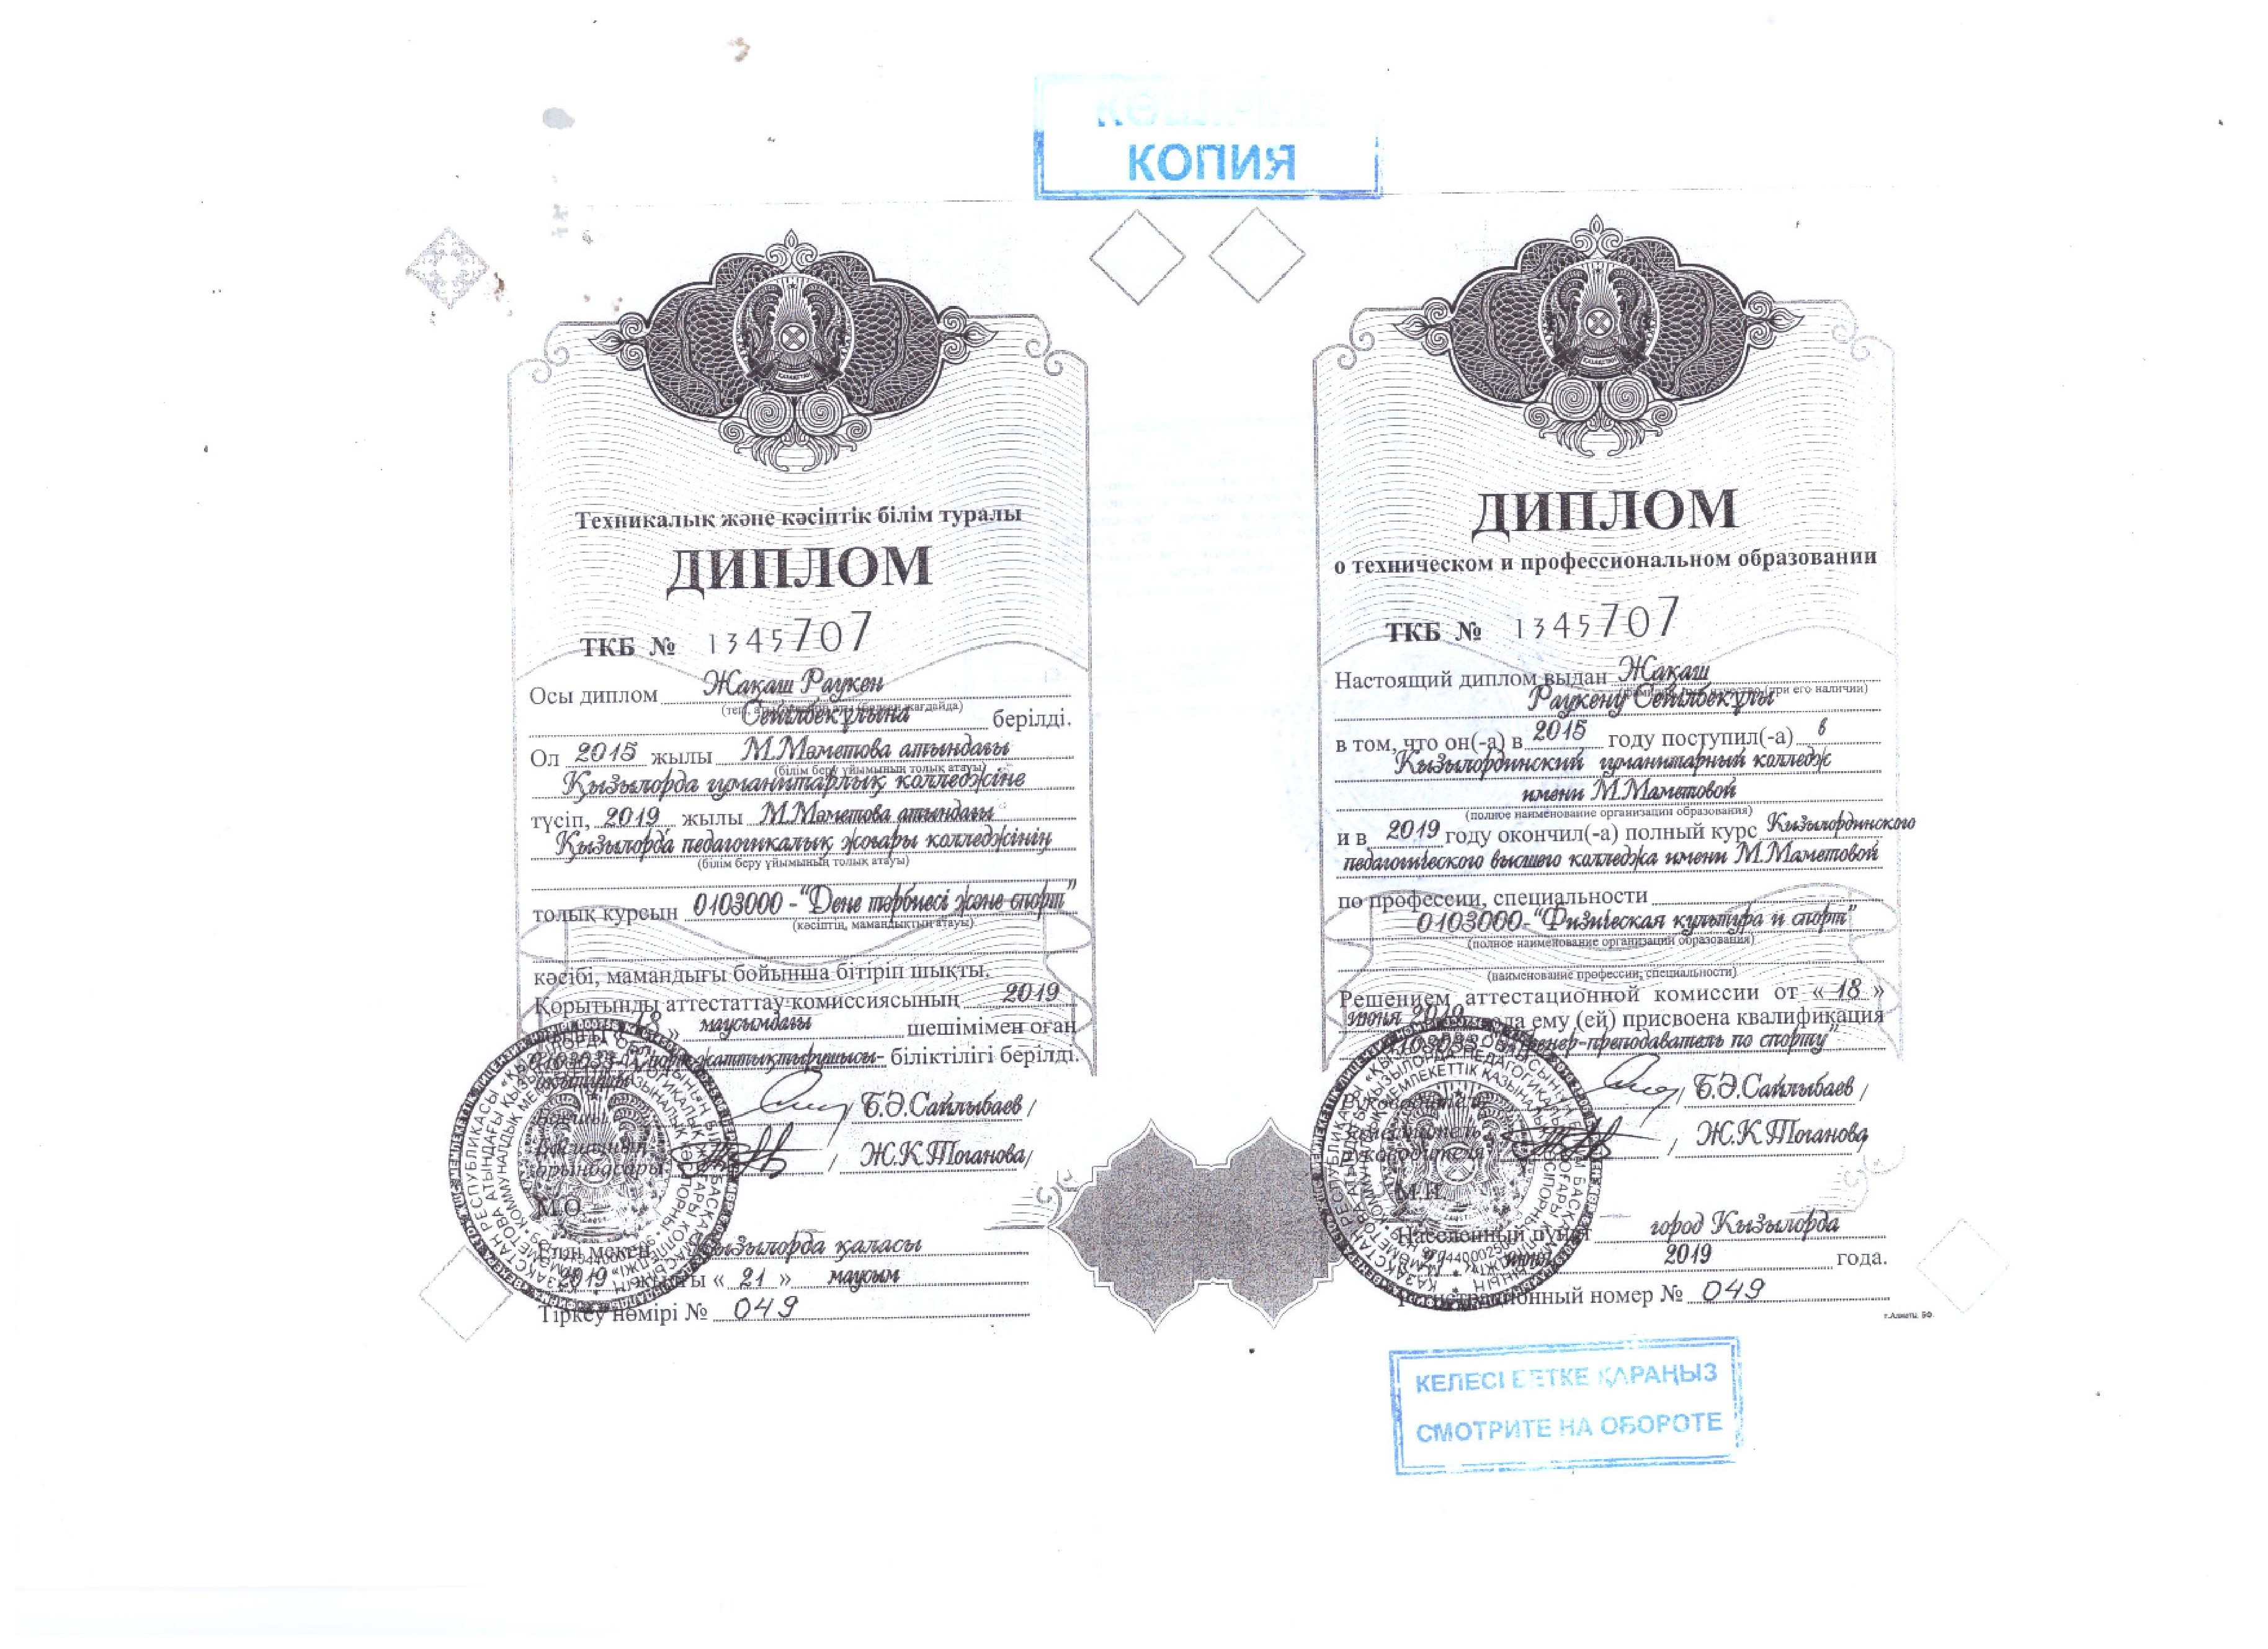 КӨШІРМЕ
КОПИЯ
Техникалық және кәсіптік білім туралы
ДИПЛОМ
ТКБ № 1345707
Осы диплом Жақаш Раукен
(тегі, аты, әкесінің аты (болған жағдайда)
Сейілбекұлына берілді.
Ол 2015 жылы М.Мәметова атындағы
(білім беру ұйымының толық атауы)
Қызылорда гуманитарлық колледжіне
түсіп, 2019 жылы М.Мәметова атындағы
Қызылорда педагогикалық жоғары колледжінің
(білім беру ұйымының толық атауы)
толық курсын 0103000 - "Дене тәрбиесі және спорт"
(кәсіптің, мамандықтың атауы)
кәсібі, мамандығы бойынша бітіріп шықты.
Қорытынды аттестаттау комиссиясының 2019
18 » маусымдағы шешімімен оған
жаттықтырушысы- біліктілігі берілді.
оқытушы
/ Б.Ә.Сайлыбаев /
орынбасары / Ж.К.Тоганова/
М.О.
Елді мекен Қызылорда қаласы
2019 жылғы « 21 » маусым
Тіркеу нөмірі № 049
ДИПЛОМ
о техническом и профессиональном образовании
ТКБ № 1345707
Настоящий диплом выдан Жақаш
(фамилия, имя, отчество (при его наличии)
Раукену Сейілбекұлы
в том, что он(-а) в 2015 году поступил(-а) в
Кызылординский гуманитарный колледж
имени М.Маметовой
(полное наименование организации образования)
и в 2019 году окончил(-а) полный курс Кызылординского
педагогического высшего колледжа имени М.Маметовой
по профессии, специальности
0103000-"Физическая культура и спорт"
(полное наименование организации образования)
(наименование профессии, специальности)
Решением аттестационной комиссии от « 18 »
июня 2019 года ему (ей) присвоена квалификация
тренер-преподаватель по спорту"
Руководитель / Б.Ә.Сайлыбаев /
руководителя / Ж.К.Тоганова
М.П.
Населенный пункт город Кызылорда
июня 2019 года.
Регистрационный номер № 049
КЕЛЕСІ БЕТКЕ ҚАРАҢЫЗ
СМОТРИТЕ НА ОБОРОТЕ